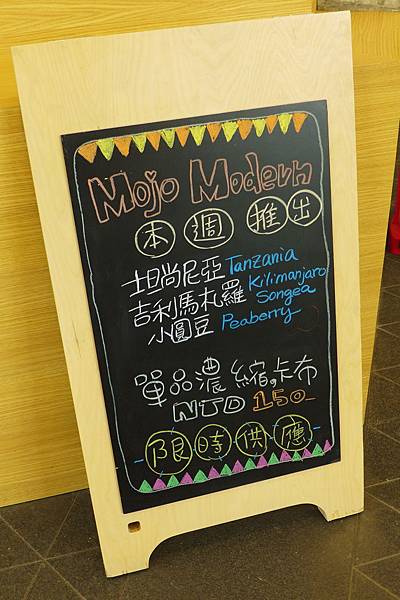 Mojo Modern
本週推出
坦尚尼亞 Tanzania
吉利馬札羅 Kilimanjaro
Songea
小圓豆 Peaberry
單品濃縮,卡布
NTD 150.-
限時供應